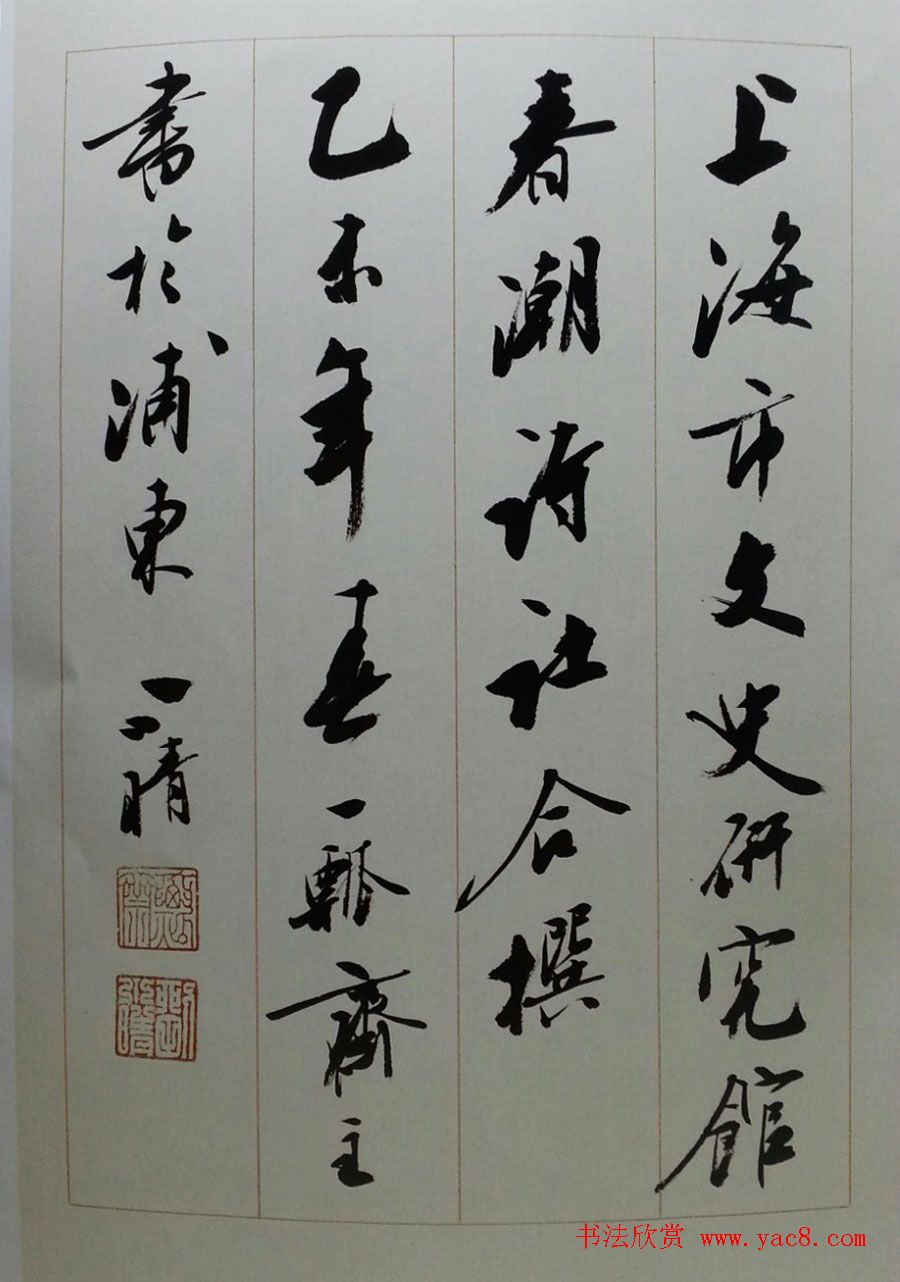 上海市文史研究館
春潮詩社合撰
乙未年春一瓢齋主
書於浦東 小晴
劉小晴
书法欣赏 www.yac8.com